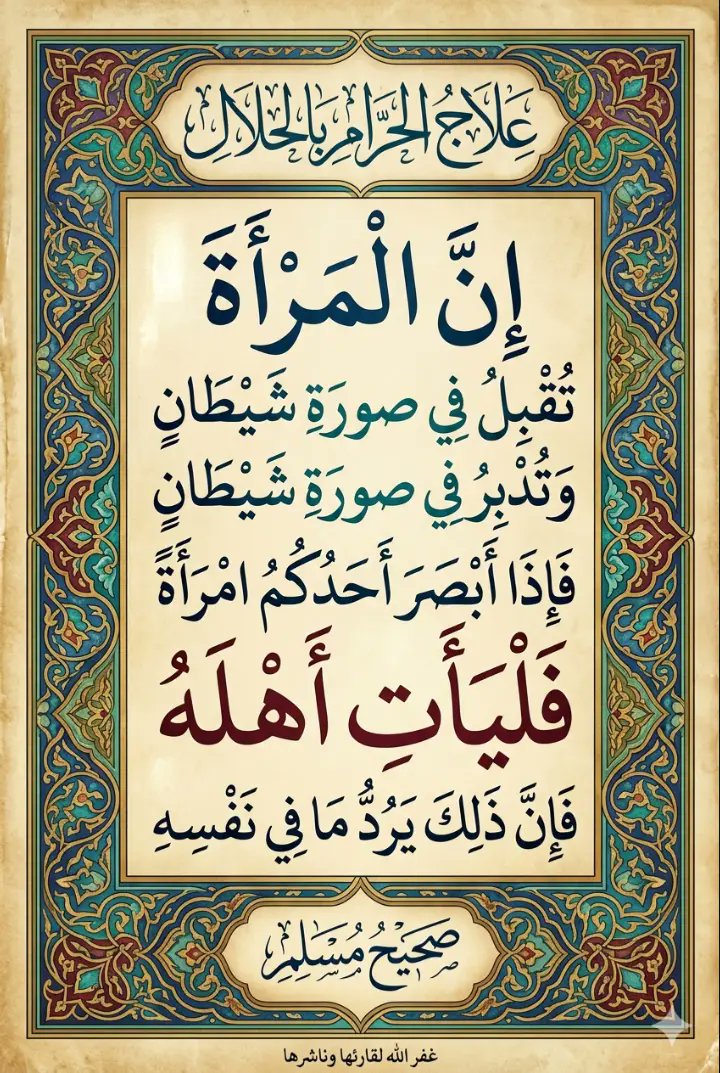 عَلَاجُ الحَرَّامِ بَالحَلَالِ
إِنَّ الْمَرْأَةَ
تُقْبِلُ فِي صورَةِ شَيْطَانٍ
وَتُدْبِرُ فِي صورَةِ شَيْطَانٍ
فَإِذَا أَبْصَرَ أَحَدُكُمُ امْرَأَةً
فَلْيَأَتِ أَهْلَهُ
فَإِنَّ ذَلِكَ يَرُدُّ مَا فِي نَفْسِهِ
صَحَيْحُ مُسْلِمِ
غفر الله لقارئها وناشرها